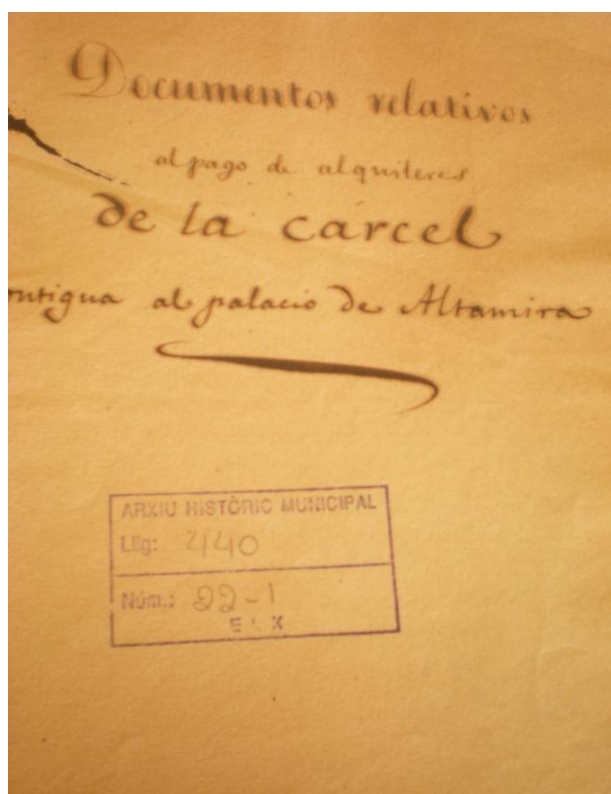 Documentos relativos
al pago de alquileres
de la cárcel
ontigua al palacio de Altamira
ARXIU HISTÒRIC MUNICIPAL
Llig: 440
Núm.: 22-1
ELX